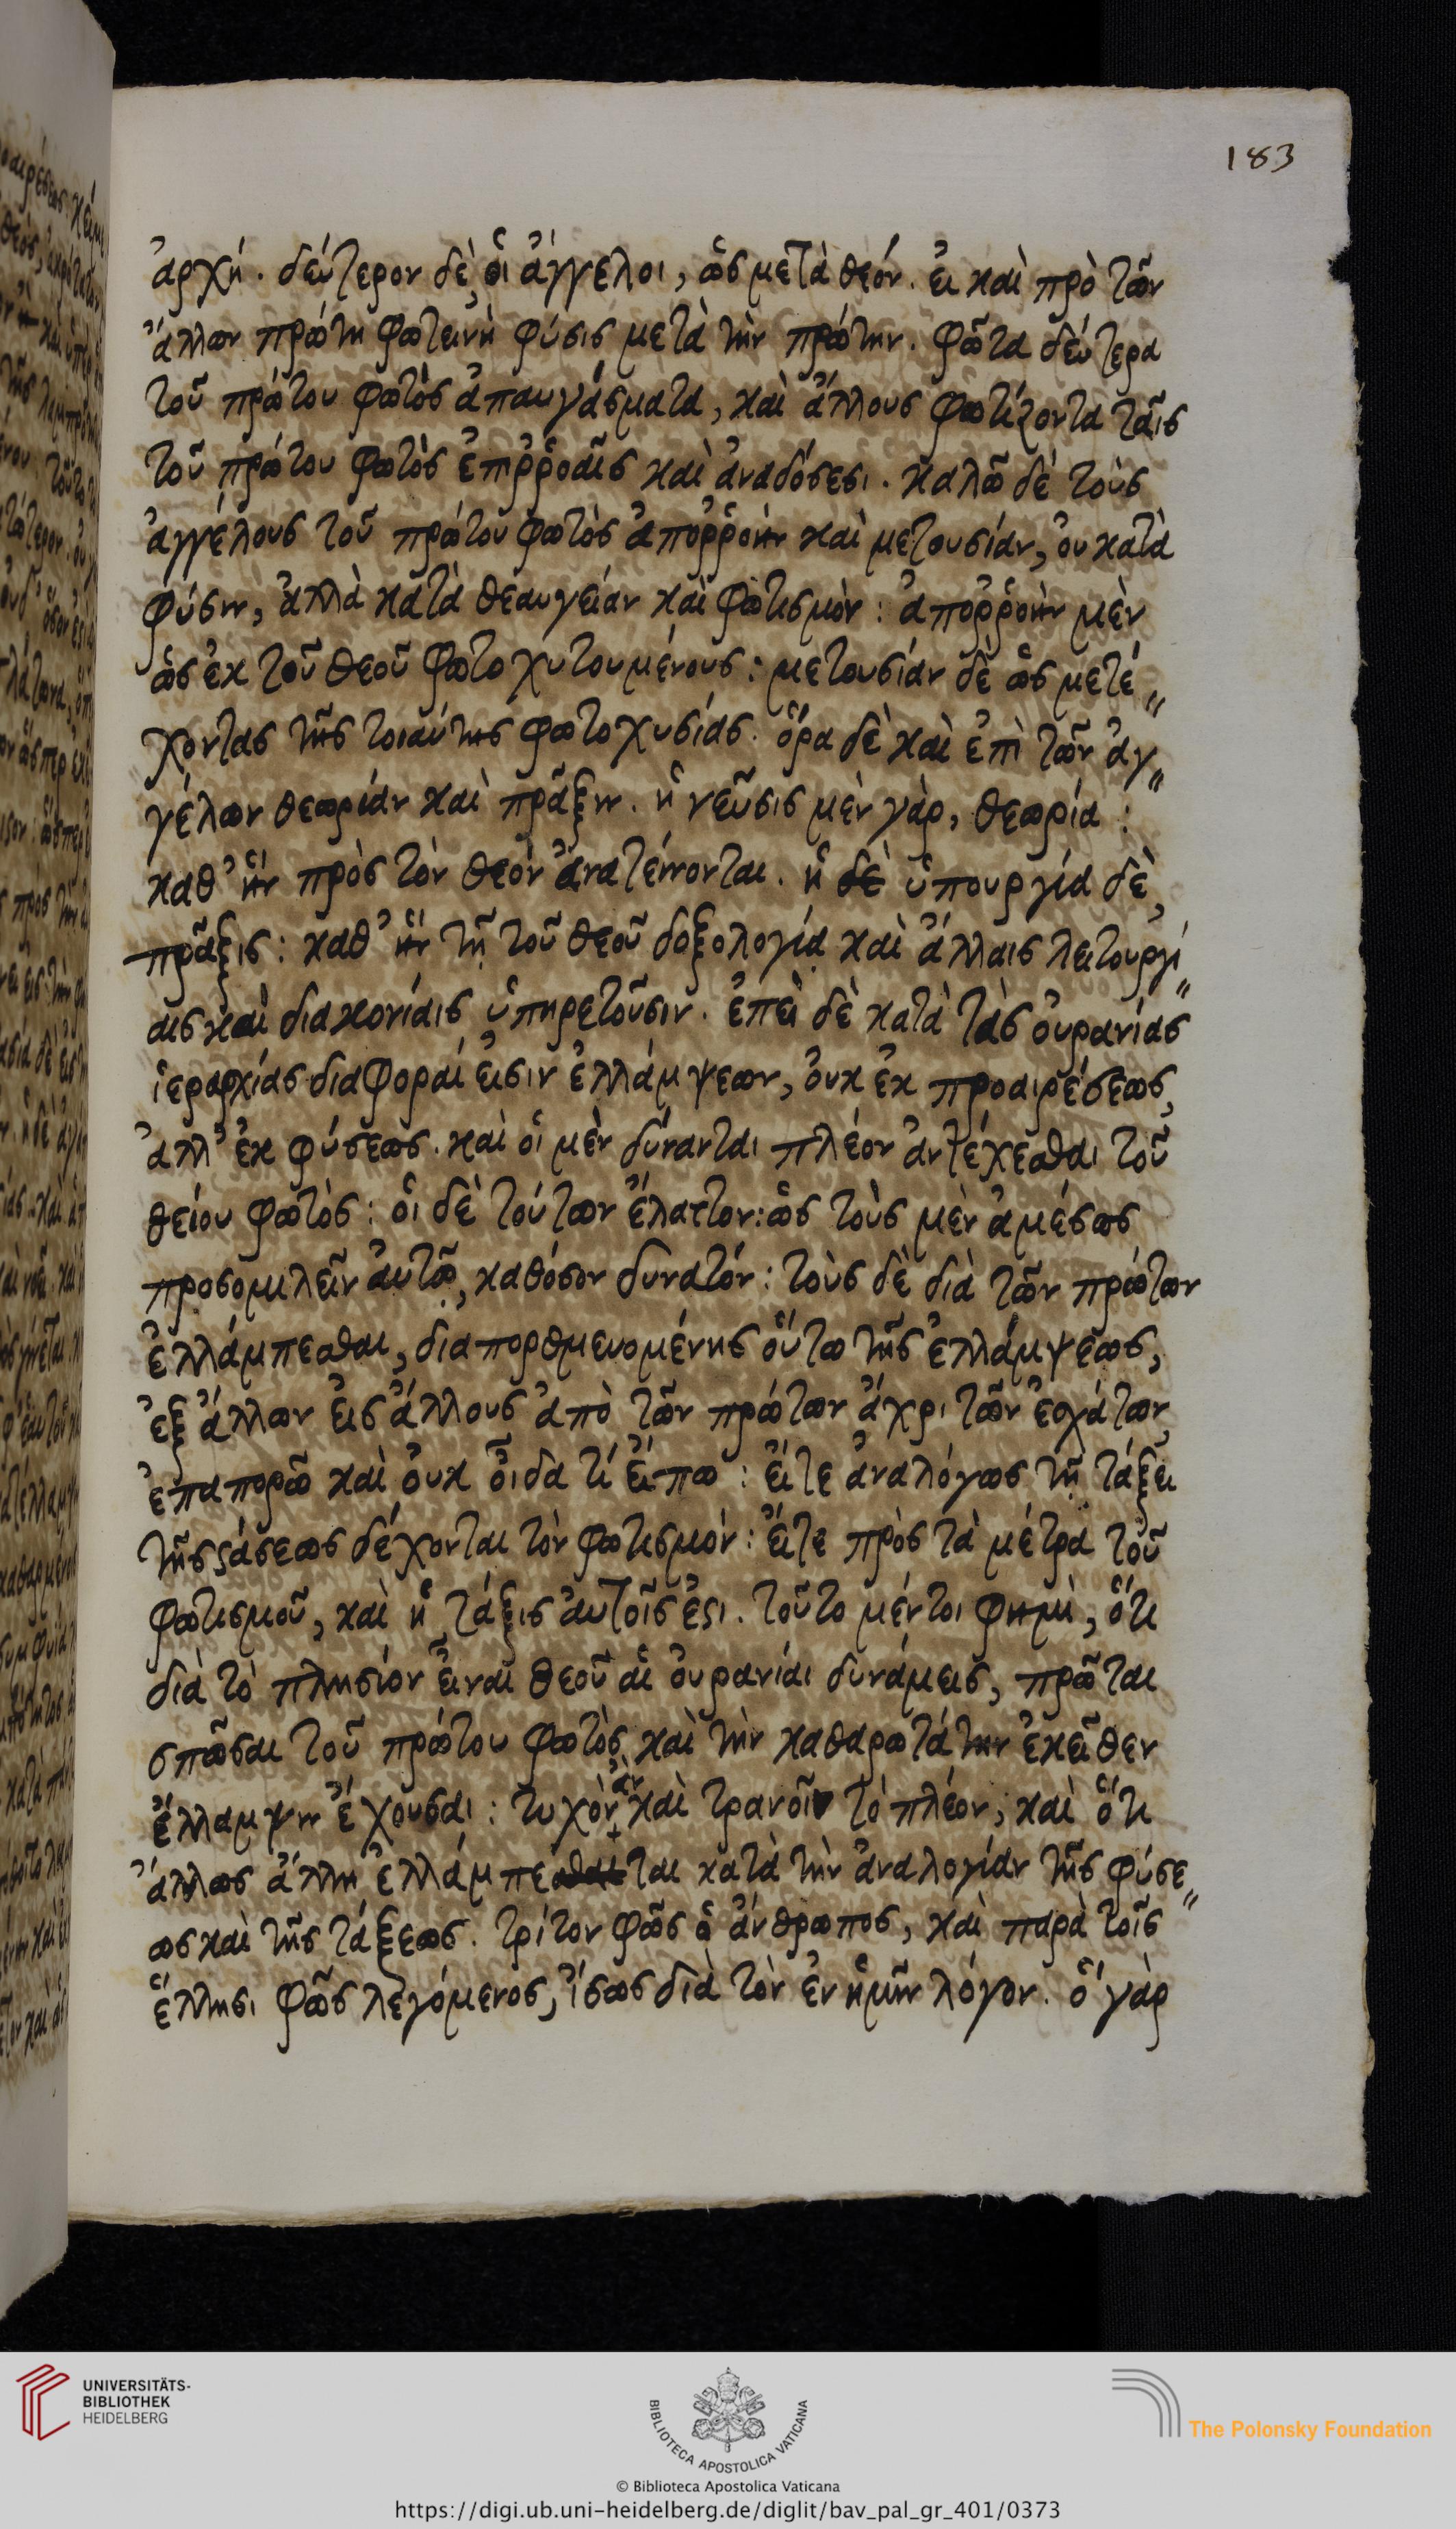 183
ἀρχή. δεύτερον δὲ, οἱ ἄγγελοι, ὡς μετὰ θεόν. εἰ καὶ πρὸ τῶν
ἄλλων πρώτη φωτεινὴ φύσις μετὰ τὴν πρώτην. φῶτα δεύτερα
τοῦ πρώτου φωτὸς ἀπαυγάσματα, καὶ ἄλλους φωτίζοντα ταῖς
τοῦ πρώτου φωτὸς ἐπιῤῥοαῖς καὶ ἀναδόσεσι. καλῶ δὲ τοὺς
ἀγγέλους τοῦ πρώτου φωτὸς ἀποῤῥοὴν καὶ μετουσίαν, οὐ κατὰ
φύσιν, ἀλλὰ κατὰ θεαυγείαν καὶ φωτισμὸν: ἀποῤῥοὴν μὲν
ὡς ἐκ τοῦ θεοῦ φωτοχυτουμένους: μετουσίαν δὲ ὡς μετέ„
χοντας τῆς τοιαύτης φωτοχυσίας. ὅρα δὲ καὶ ἐπὶ τῶν ἀγ„
γέλων θεωρίαν καὶ πρᾶξιν. ἡ νεῦσις μὲν γὰρ, θεωρία:
καθ' ἣν πρὸς τὸν θεὸν ἀνατείνονται. ἡ δὲ ὑπουργία δὲ,
πρᾶξις: καθ' ἣν τῇ τοῦ θεοῦ δοξολογίᾳ καὶ ἄλλαις λειτουργί„
αις καὶ διακονίαις ὑπηρετοῦσιν. ἐπεὶ δὲ κατὰ τὰς οὐρανίας
ἱεραρχίας διαφοραί εἰσιν ἐλλάμψεων, οὐκ ἐκ προαιρέσεως,
ἀλλ' ἐκ φύσεως. καὶ οἱ μὲν δύνανται πλέον ἀντέχεσθαι τοῦ
θείου φωτὸς: οἱ δὲ τούτων ἔλαττον: ὡς τοὺς μὲν ἀμέσως
προσομιλεῖν αὐτῷ, καθόσον δυνατόν: τοὺς δὲ διὰ τῶν πρώτων
ἐλλάμπεσθαι, διαπορθμευομένης οὕτω τῆς ἐλλάμψεως,
ἐξ ἄλλων εἰς ἄλλους ἀπὸ τῶν πρώτων ἄχρι τῶν ἐσχάτων,
ἐπαπορῶ καὶ οὐκ οἶδα τί εἴπω: εἴτε ἀναλόγως τῇ τάξει
τῆς στάσεως δέχονται τὸν φωτισμόν: εἴτε πρὸς τὰ μέτρα τοῦ
φωτισμοῦ, καὶ ἡ τάξις αὐτοῖς ἐστι. τοῦτο μέντοι φημὶ, ὅτι
διὰ τὸ πλησίον εἶναι θεοῦ αἱ οὐράνιαι δυνάμεις, πρῶται
σπῶσαι τοῦ πρώτου φωτὸς, καὶ τὴν καθαρωτάτην ἐκεῖθεν
ἔλλαμψιν ἔχουσαι: τυχὸν ἂν καὶ τρανοῖν τὸ πλέον, καὶ ὅτι
ἄλλως ἄλλη ἐλλάμπεσθαι ται κατὰ τὴν ἀναλογίαν τῆς φύσε„
ως καὶ τῆς τάξεως. τρίτον φῶς ὁ ἄνθρωπος, καὶ παρὰ τοῖς
ἕλλησι φῶς λεγόμενος, ἴσως διὰ τὸν ἐν ἡμῖν λόγον. ὃ γὰρ
UNIVERSITÄTS-
BIBLIOTHEK
HEIDELBERG
BIBLIOTECA APOSTOLICA VATICANA
The Polonsky Foundation
© Biblioteca Apostolica Vaticana
https://digi.ub.uni-heidelberg.de/diglit/bav_pal_gr_401/0373